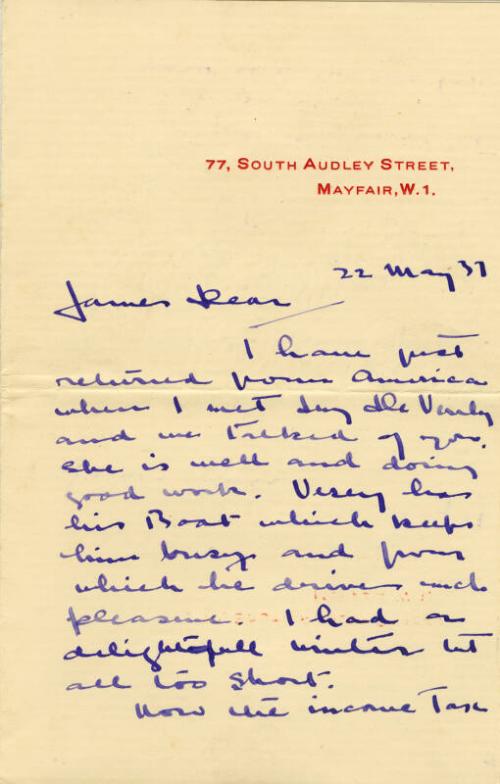 77, SOUTH AUDLEY STREET,
MAYFAIR, W.1.
22 May 37
James Dear
I have just
returned from America
where I met De
and we talked of you.
She is well and doing
good work. has
his Boat which keeps
him busy and from
which he derives much
pleasure. I had a
delightfull winter but
all too short.
Now the income Tax